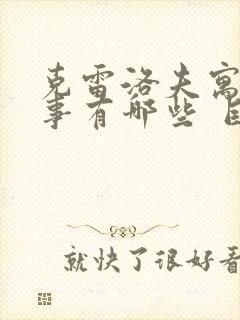 克雷洛夫寓
事有哪些
就快了很好看